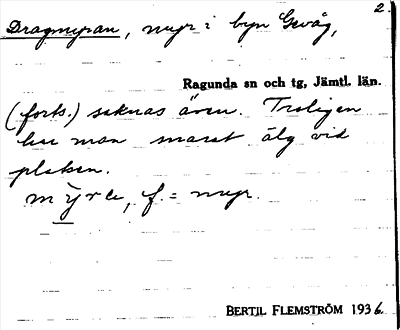 2.
Dragmyran, myr i byn Gevåg,
Ragunda sn och tg, Jämtl. län.
(forts.) saknas även. Troligen
har man snarat älg vid
platsen.
mȳre, f. = myr.
BERTIL FLEMSTRÖM 1936.